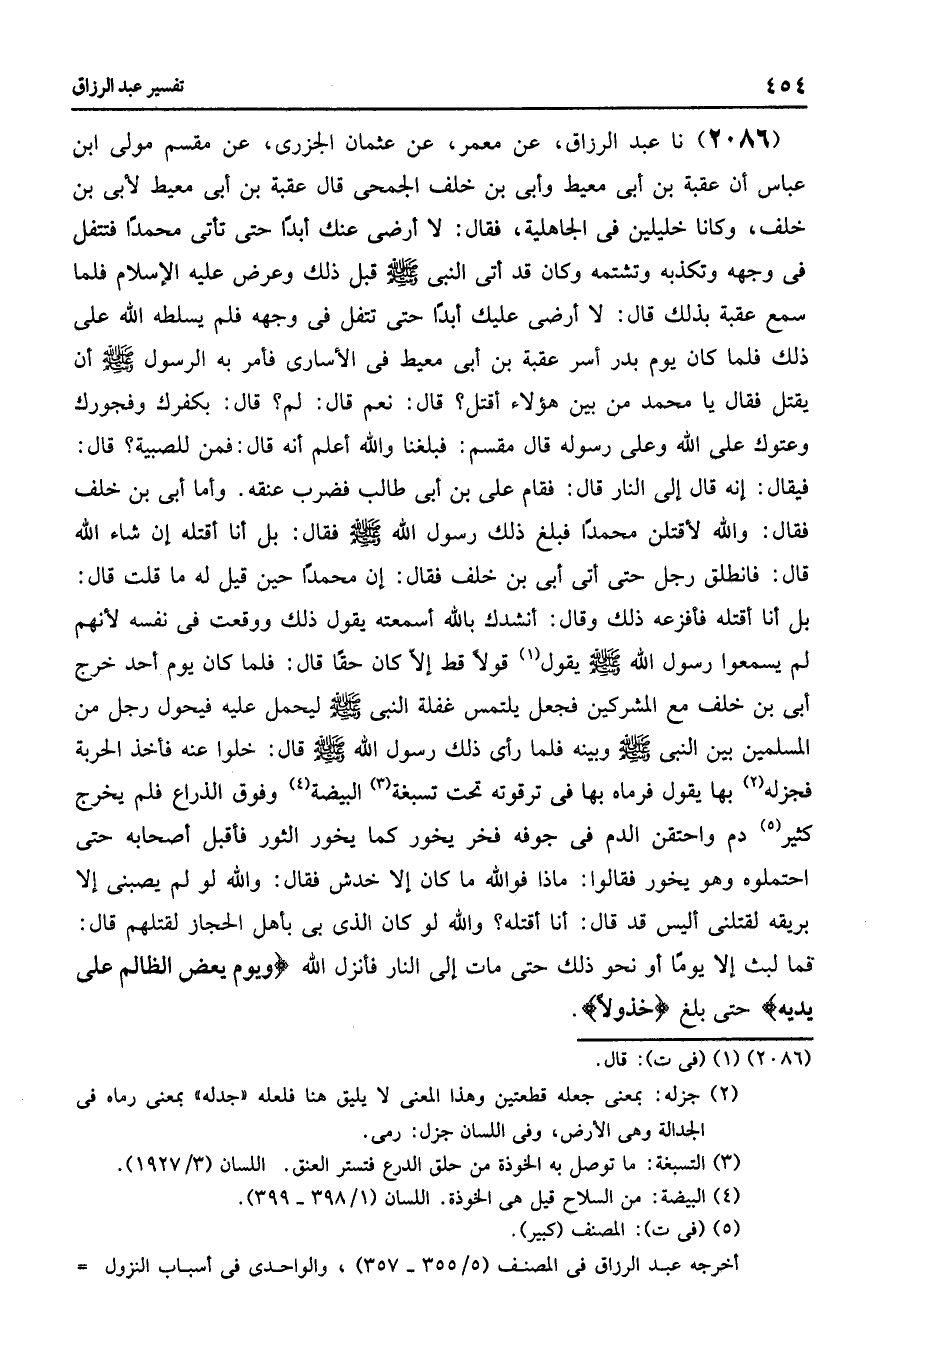 ٤٥٤ تفسير عبد الرزاق
(٢٠٨٦) نا عبد الرزاق، عن معمر، عن عثمان الجزرى، عن مقسم مولى ابن
عباس أن عقبة بن أبى معيط وأبى بن خلف الجمحى قال عقبة بن أبى معيط لأبى بن
خلف، وكانا خليلين فى الجاهلية، فقال: لا أرضى عنك أبدًا حتى تأتى محمدًا فتتفل
فى وجهه وتكذبه وتشتمه وكان قد أتى النبى ﷺ قبل ذلك وعرض عليه الإسلام فلما
سمع عقبة بذلك قال: لا أرضى عليك أبدًا حتى تتفل فى وجهه فلم يسلطه الله على
ذلك فلما كان يوم بدر أسر عقبة بن أبى معيط فى الأسارى فأمر به الرسول ﷺ أن
يقتل فقال يا محمد من بين هؤلاء أقتل؟ قال: نعم قال: لم؟ قال: بكفرك وفجورك
وعتوك على الله وعلى رسوله قال مقسم: فبلغنا والله أعلم أنه قال: فمن للصبية؟ قال:
فيقال: إنه قال إلى النار قال: فقام على بن أبى طالب فضرب عنقه. وأما أبى بن خلف
فقال: والله لأقتلن محمدًا فبلغ ذلك رسول الله ﷺ فقال: بل أنا أقتله إن شاء الله
قال: فانطلق رجل حتى أتى أبى بن خلف فقال: إن محمدًا حين قيل له ما قلت قال:
بل أنا أقتله فأفزعه ذلك وقال: أنشدك بالله أسمعته يقول ذلك ووقعت فى نفسه لأنهم
لم يسمعوا رسول الله ﷺ يقول(١) قولاً قط إلاّ كان حقًا قال: فلما كان يوم أحد خرج
أبى بن خلف مع المشركين فجعل يلتمس غفلة النبى ﷺ ليحمل عليه فيحول رجل من
المسلمين بين النبى ﷺ وبينه فلما رأى ذلك رسول الله ﷺ قال: خلوا عنه فأخذ الحربة
فجزله(٢) بها يقول فرماه بها فى ترقوته تحت تسبغة(٣) البيضة(٤) وفوق الذراع فلم يخرج
كثير(٥) دم واحتقن الدم فى جوفه فخر يخور كما يخور الثور فأقبل أصحابه حتى
احتملوه وهو يخور فقالوا: ماذا فوالله ما كان إلا خدش فقال: والله لو لم يصبنى إلا
بريقه لقتلنى أليس قد قال: أنا أقتله؟ والله لو كان الذى بى بأهل الحجاز لقتلهم قال:
فما لبث إلا يومًا أو نحو ذلك حتى مات إلى النار فأنزل الله ﴿ويوم يعض الظالم على
يديه﴾ حتى بلغ ﴿خذولاً﴾.
(٢٠٨٦) (١) (فى ت): قال.
(٢) جزله: بمعنى جعله قطعتين وهذا المعنى لا يليق هنا فلعله «جدله» بمعنى رماه فى
الجدالة وهى الأرض، وفى اللسان جزل: رمى.
(٣) التسبغة: ما توصل به الخوذة من حلق الدرع فتستر العنق. اللسان (١٩٢٧/٣).
(٤) البيضة: من السلاح قيل هى الخوذة. اللسان (٣٩٨/١ ـ ٣٩٩).
(٥) (فى ت): المصنف (كبير).
أخرجه عبد الرزاق فى المصنف (٣٥٥/٥ ـ ٣٥٧) ، والواحدى فى أسباب النزول =